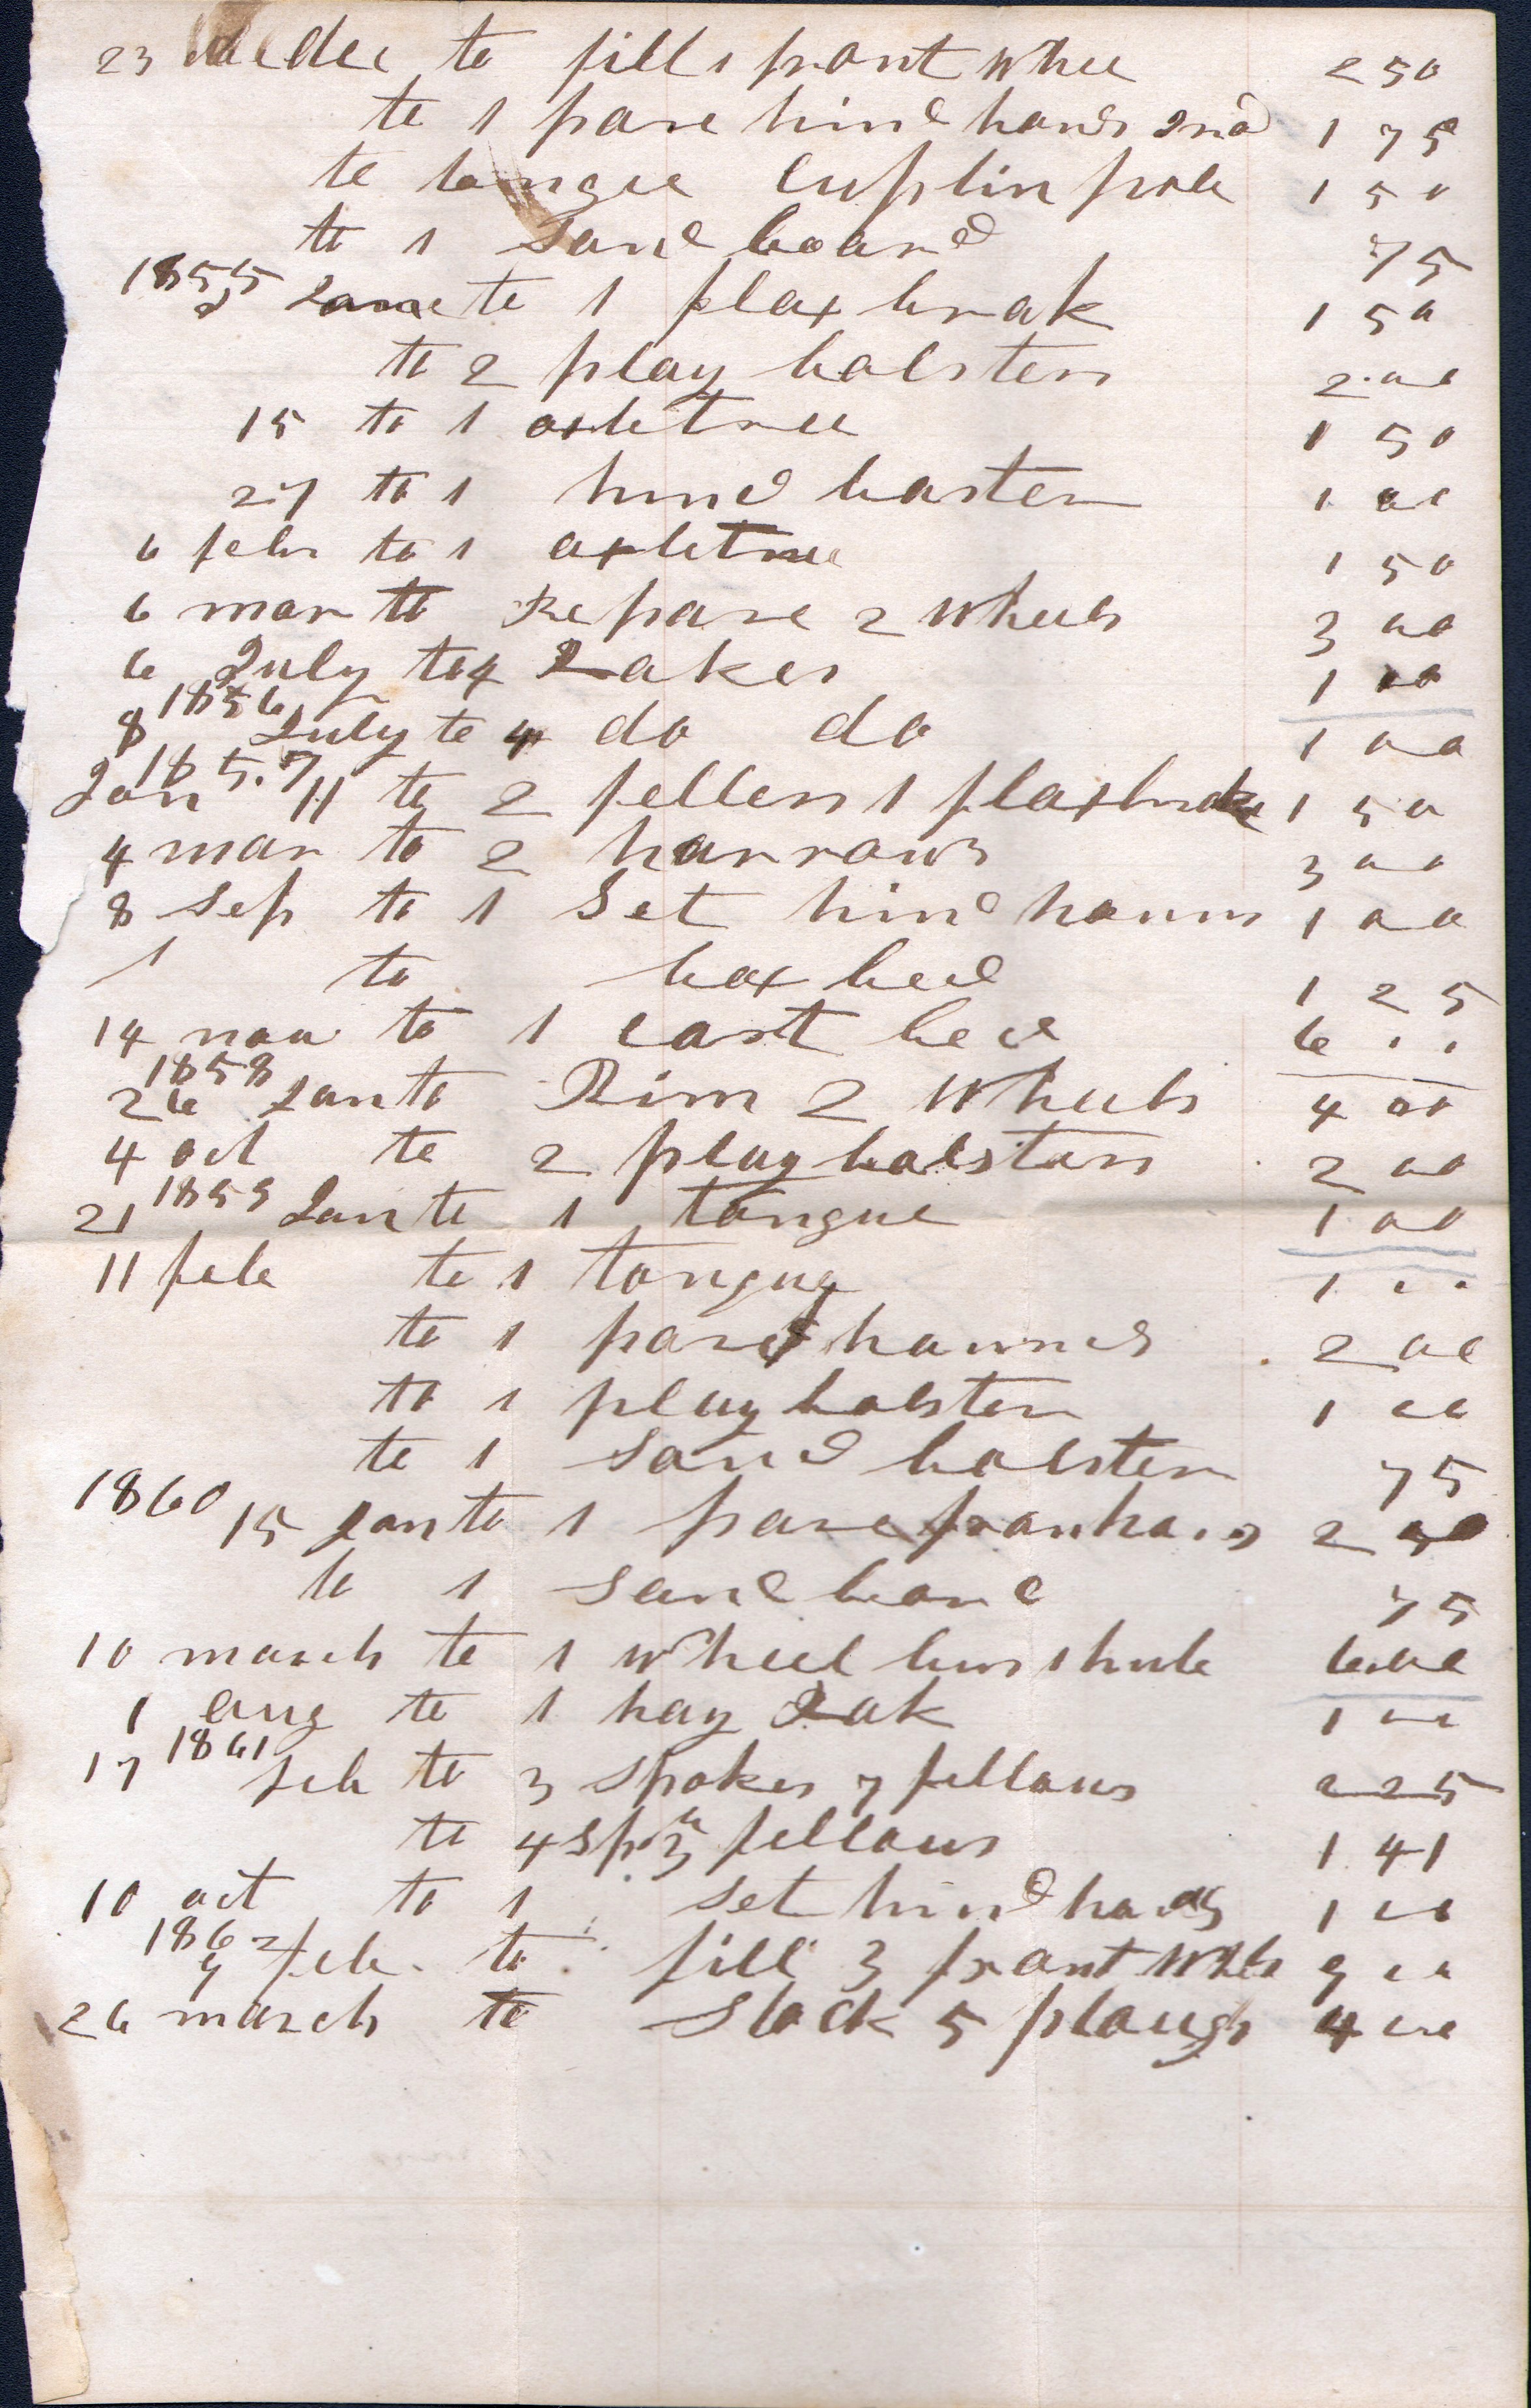 23 dec to fill 1 front whee 2 50
to 1 pare hind hons 2nd 1 75
to tongee cuplin pole 1 50
to 1 sand board 75
1855
2 Jane to 1 flax brak 1 50
to 2 play bolsters 2.00
15 to 1 axletree 1 50
27 to 1 hind bolster 1 00
6 febr to 1 axletree 1 50
6 mar to Repare 2 wheels 3 00
6 July to 4 Rakes 1 00
1856
8 July to 4 do do 1 00
1857
Jan 11 to 2 fellers 1 flaxbrake 1 50
4 mar to 2 harrows 3 00
8 Sep to 1 Set hind houns 1 00
1 to box bed 1 25
14 nov to 1 cart bed 6 . .
1858
26 Jan to Rim 2 wheels 4 00
4 oct to 2 play bolstors 2 00
1859
21 Jan to 1 tongue 1 00
11 feb to 1 tongue 1 . .
to 1 pare hownes 2 00
to 1 play bolster 1 00
to 1 sand bolster 75
1860
15 Jan to 1 pare fron 2
to 1 sand bord 75
10 march to 1 wheel 1 hub 6.00
1 aug to 1 hay Rak 1 00
1861
17 feb to 3 spokes 7 fellows 2 25
to 4 sp 3 fellows 1.41
10 oct to 1 set hind 1 00
1862
9 feb. to fill 3 front whls 9 00
26 march to Stock 5 plougs 4 00